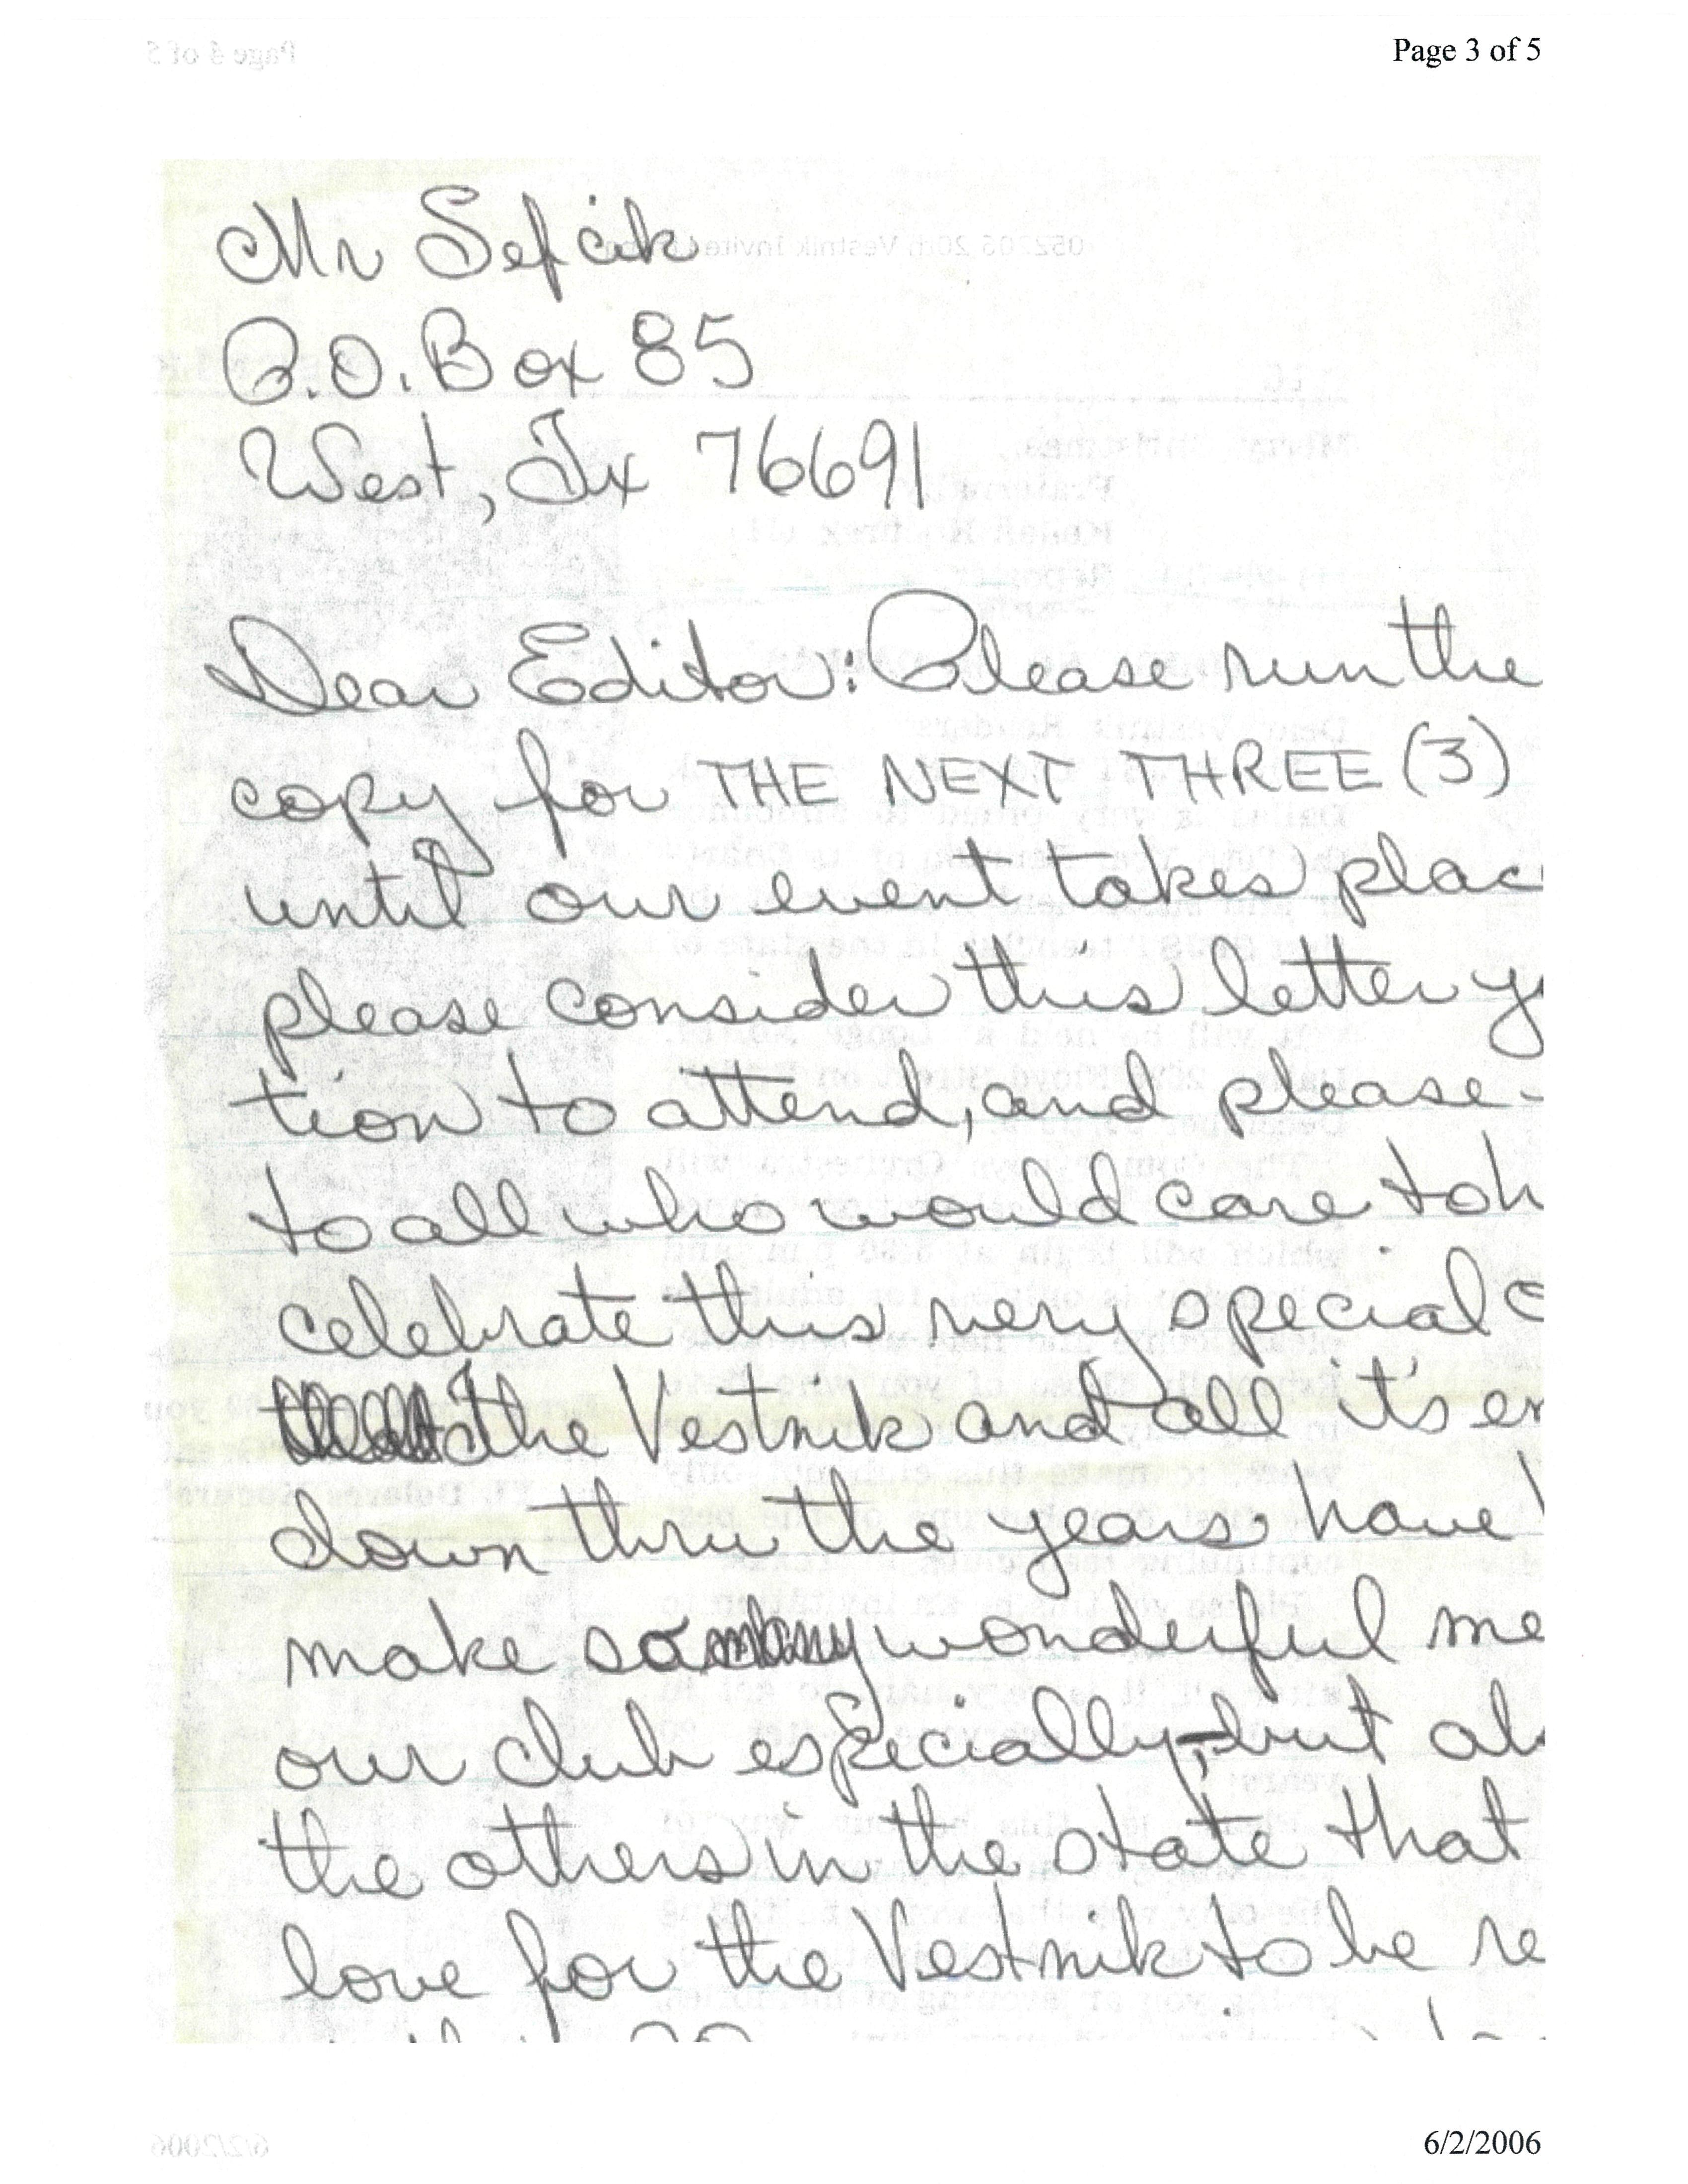 Page 3 of 5
Mr Sefcik
P.O. Box 85
West, Tx 76691
Dear Editor: Please run the
copy for THE NEXT THREE (3)
until our event takes plac
please consider this letter y
tion to attend, and please
to all who would care to h
celebrate this very special
the Vestnik and all it's en
down thru the years have
make so many wonderful me
our club especially, but al
the others in the state that
love for the Vestnik to be re
6/2/2006